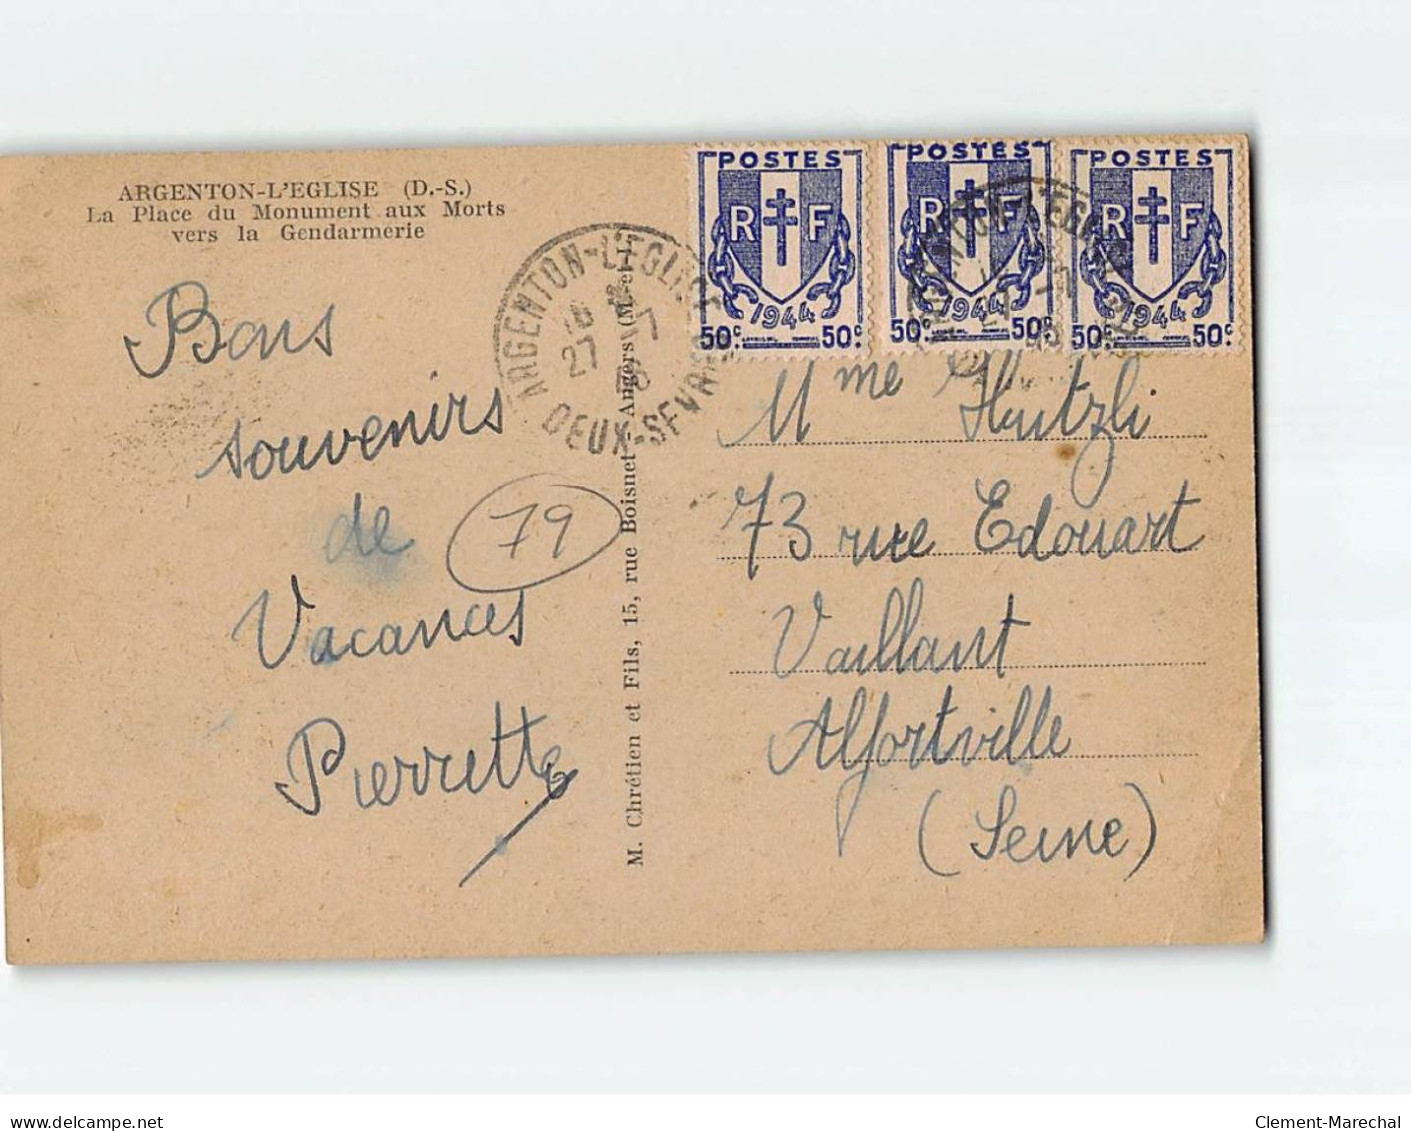 ARGENTON-L'EGLISE (D.-S.)
La Place du Monument aux Morts
vers la Gendarmerie
Bons
souvenirs
de
Vacances
Pierrette
79
ARGENTON-L'EGLISE
16
27 -7
DEUX-SEVRES
M. Chrétien et Fils, 15, rue Boisnet - Angers (M.-et-L.)
POSTES
RF
1944
50c. 50c.
POSTES
RF
1944
50c. 50c.
POSTES
RF
1944
50c. 50c.
Mme Hutzli
73 rue Edouart
Vaillant
Alfortville
(Seine)
www.delcampe.net
Clement-Marechal